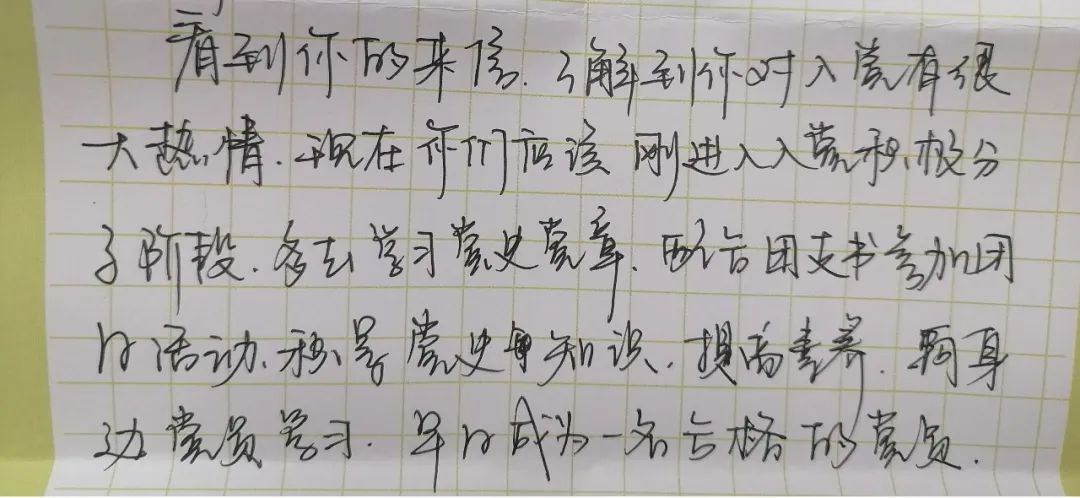 看到你的来信.了解到你对入党有很
大热情.现在你们应该刚进入入党积极分
子阶段.多去学习党史党章.配合团支书参加团
日活动.积累党史知识.提高素养.向身
边党员学习.早日成为一名合格的党员.